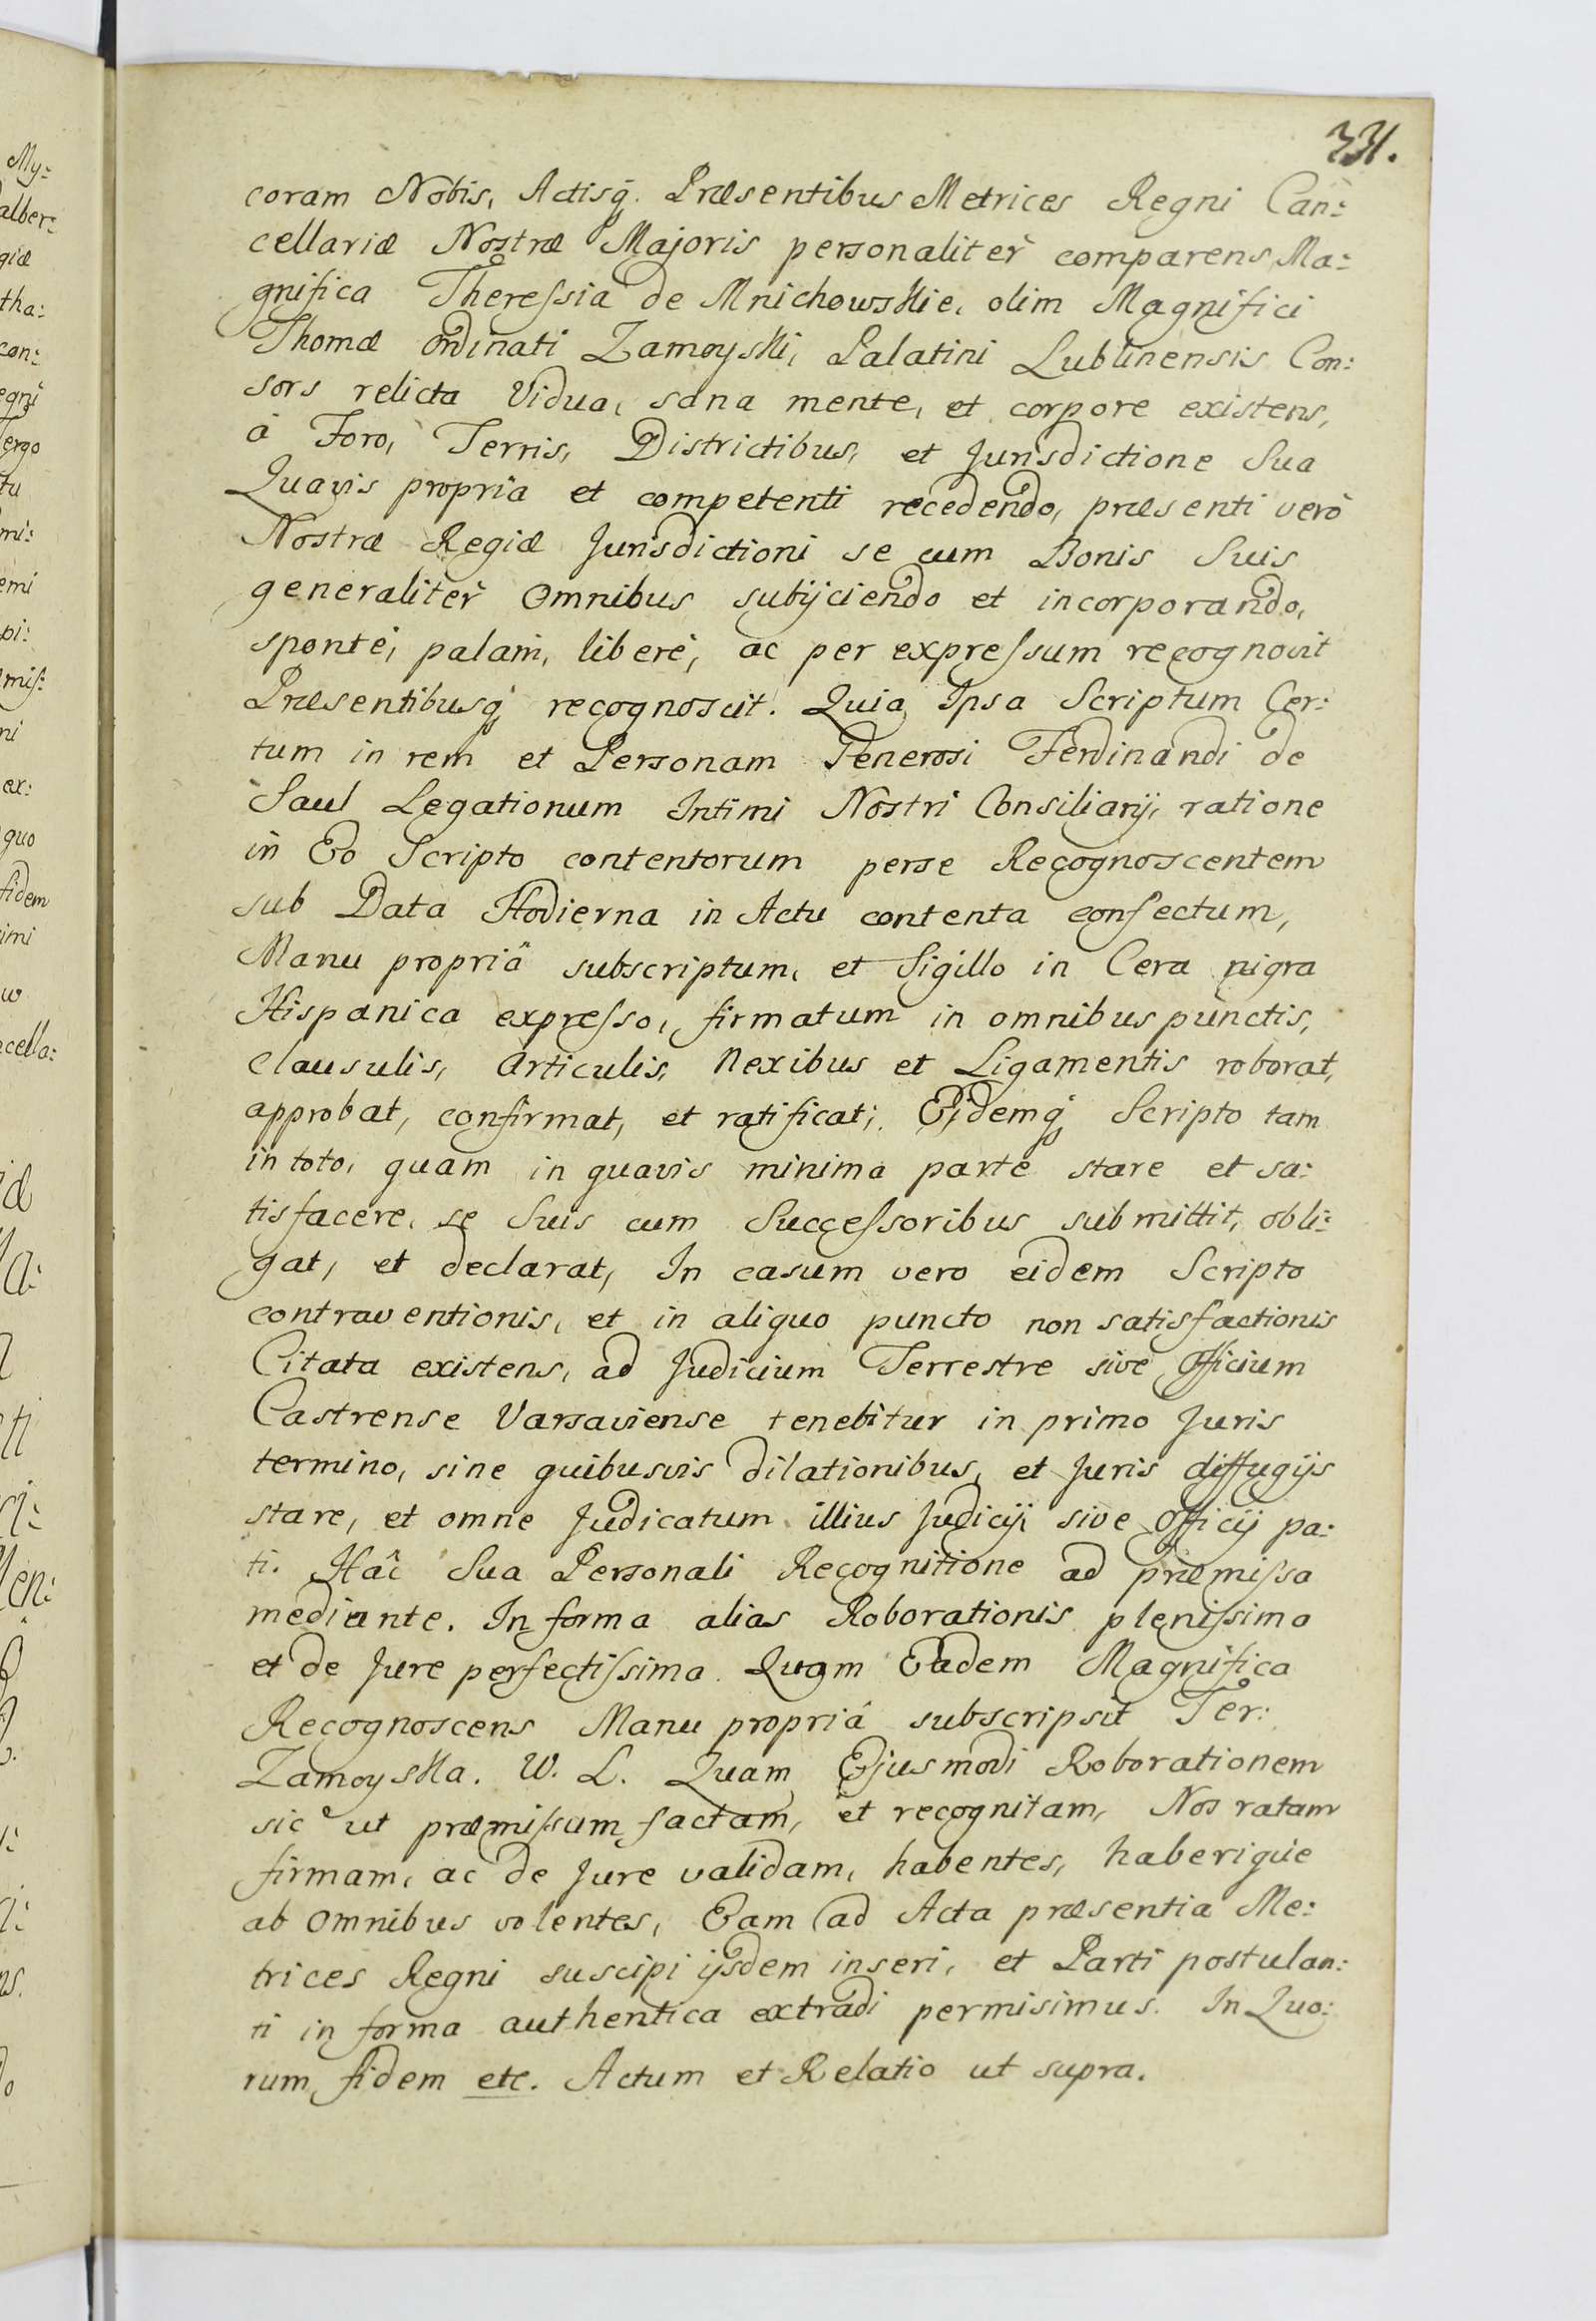 331.
coram Nobis, Actisq́. Præsentibus Metrices Regni Can:
cellariæ Nostræ Majoris personaliter comparens Ma:
gnifica Theressia de Mnichowskie, olim Magnifici
Thomæ Ordinati Zamoyski, Palatini Lublinensis Con:
sors relicta Vidua, sana mente, et corpore existens,
à Foro, Terris, Districtibus, et Jurisdictione Sua
Quavis propria et competenti recedendo, præsenti verò
Nostræ Regiæ Jurisdictioni se cum Bonis Suis
generaliter Omnibus subijciendo et incorporando,
sponté, palam, liberé, ac per expressum recognovit
Præsentibusq́ recognoscit. Quia Ipsa Scriptum Cer:
tum in rem et Personam Generosi Ferdinandi de
Saul Legationum Intimi Nostri Consiliarij, ratione
in Eo Scripto contentorum perse Recognoscentem
sub Data Hodierna in Actu contenta confectum,
Manu propriâ subscriptum, et Sigillo in Cera nigra
Hispanica expresso, firmatum in omnibus punctis,
Clausulis, Articulis, Nexibus et Ligamentis roborat,
approbat, confirmat, et ratificat; Eidemq́ Scripto tam
in toto, quam in quavis minima parte stare et sa:
tisfacere, se Suis cum Successoribus submittit, obli:
gat, et declarat, In casum vero eidem Scripto
contraventionis, et in aliquo puncto non satisfactionis
Citata existens, ad Judicium Terrestre sive Officium
Castrense Varsaviense tenebitur in primo Juris
termino, sine quibusvis dilationibus, et Juris diffugijs
stare, et omne Judicatum illius Judicij sive Officij pa:
ti. Hâc Sua Personali Recognitione ad præmissa
mediante. In forma alias Roborationis plenissima
et de Jure perfectissima. Quam Eadem Magnifica
Recognoscens Manu propriâ subscripsit Ter:
Zamoyska. W. L. Quam Ejusmodi Roborationem
sic ut præmissum factam, et recognitam, Nos ratam
firmam, ac de Jure validam, habentes, haberique
ab Omnibus volentes, Eam ad Acta præsentia Me:
trices Regni suscipi ijsdem inseri, et Parti postulan:
ti in forma authentica extradi permisimus. In Quo:
rum fidem etc. Actum et Relatio ut supra.